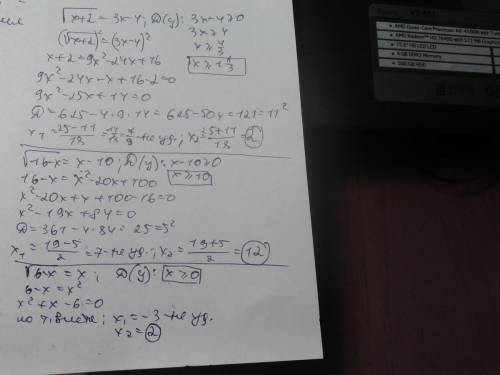 √x+2 = 3x-4; D(y): 3x-4≥0
(√x+2)² = (3x-4)² 3x≥4
x≥4/3
x+2=9x²-24x+16 x≥1 1/3
9x²-24x-x+16-2=0
9x²-25x+14=0
D=625-4·9·14=625-504=121=11²
x₁=25-11/18=14/18=7/9-не уд.; x₂=25+11/18=2
√16-x=x-10; D(y): x-10≥0
16-x=x²-20x+100 x≥10
x²-20x+x+100-16=0
x²-19x+84=0
D=361-4·84=25=5²
x₁=19-5/2=7-не уд.; x₂=19+5/2=12
√6-x=x; D(y): x≥0
6-x=x²
x²+x-6=0
по т. Виета; x₁=-3-не уд.
x₂=2
AMD Quad-Core Processor
AMD Radeon™ HD
15.6" HD LED LCD
4 GB DDR3 Memory
500 GB HDD